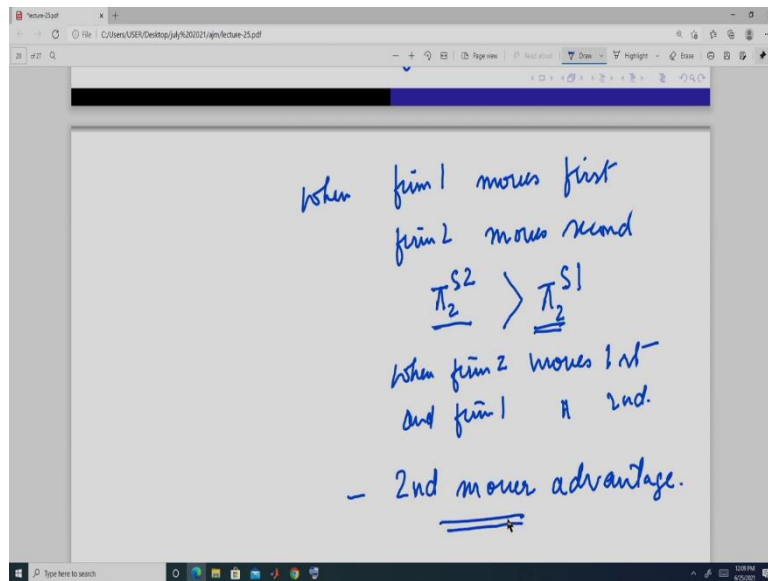 *lecture-25.pdf
File | C:/Users/USER/Desktop/july%202021/ajm/lecture-25.pdf
28 of 27 Page view Read aloud Draw Highlight Erase
when firm 1 moves first
firm 2 moves second
π₂^S2 > π₂^S1
when firm 2 moves 1st
and firm 1 " 2nd.
- 2nd mover advantage.
Type here to search
12:09 PM
6/25/2021